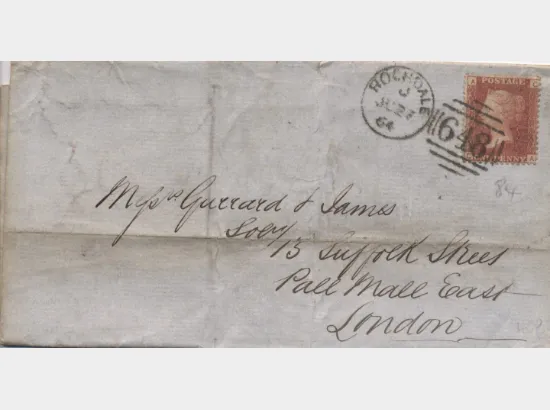 ROCHDALE
J
JU 27
64
648
POSTAGE
PENNY
84
Messrs Gurrard & James
Solrs
13 Suffolk Street
Pall Mall East
London